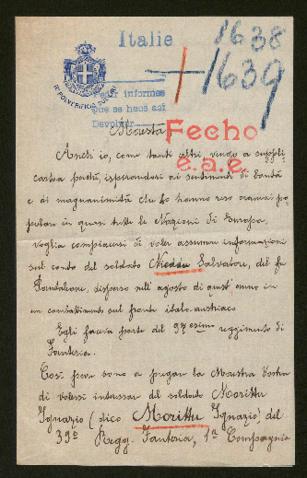 Italie
1638
+1639
Pedir informes
que se hace así
Devolver
Maestà
Fecho
e.a.e.
Anch'io, come tanti altri vengo a suppli-
carLa perchè, ispirandosi ai sentimenti di bontà
e di magnanimità che La hanno reso oramai po-
polare in quasi tutte le Nazioni di Europa,
voglia compiacersi di voler assumere informazioni
sul conto del soldato Neddu Salvatore, del fu
Pantaleone, disperso nell'agosto di quest'anno in
un combattimento sul fronte italo-austriaco.
Egli faceva parte del 97esimo reggimento di
Fanteria.
Così pure sono a pregar la Maestra Vostra
di volersi interessar del soldato Morittu
Ignazio (dico Morittu Ignazio) del
39º Regg. Fanteria, 1ª Compagnia